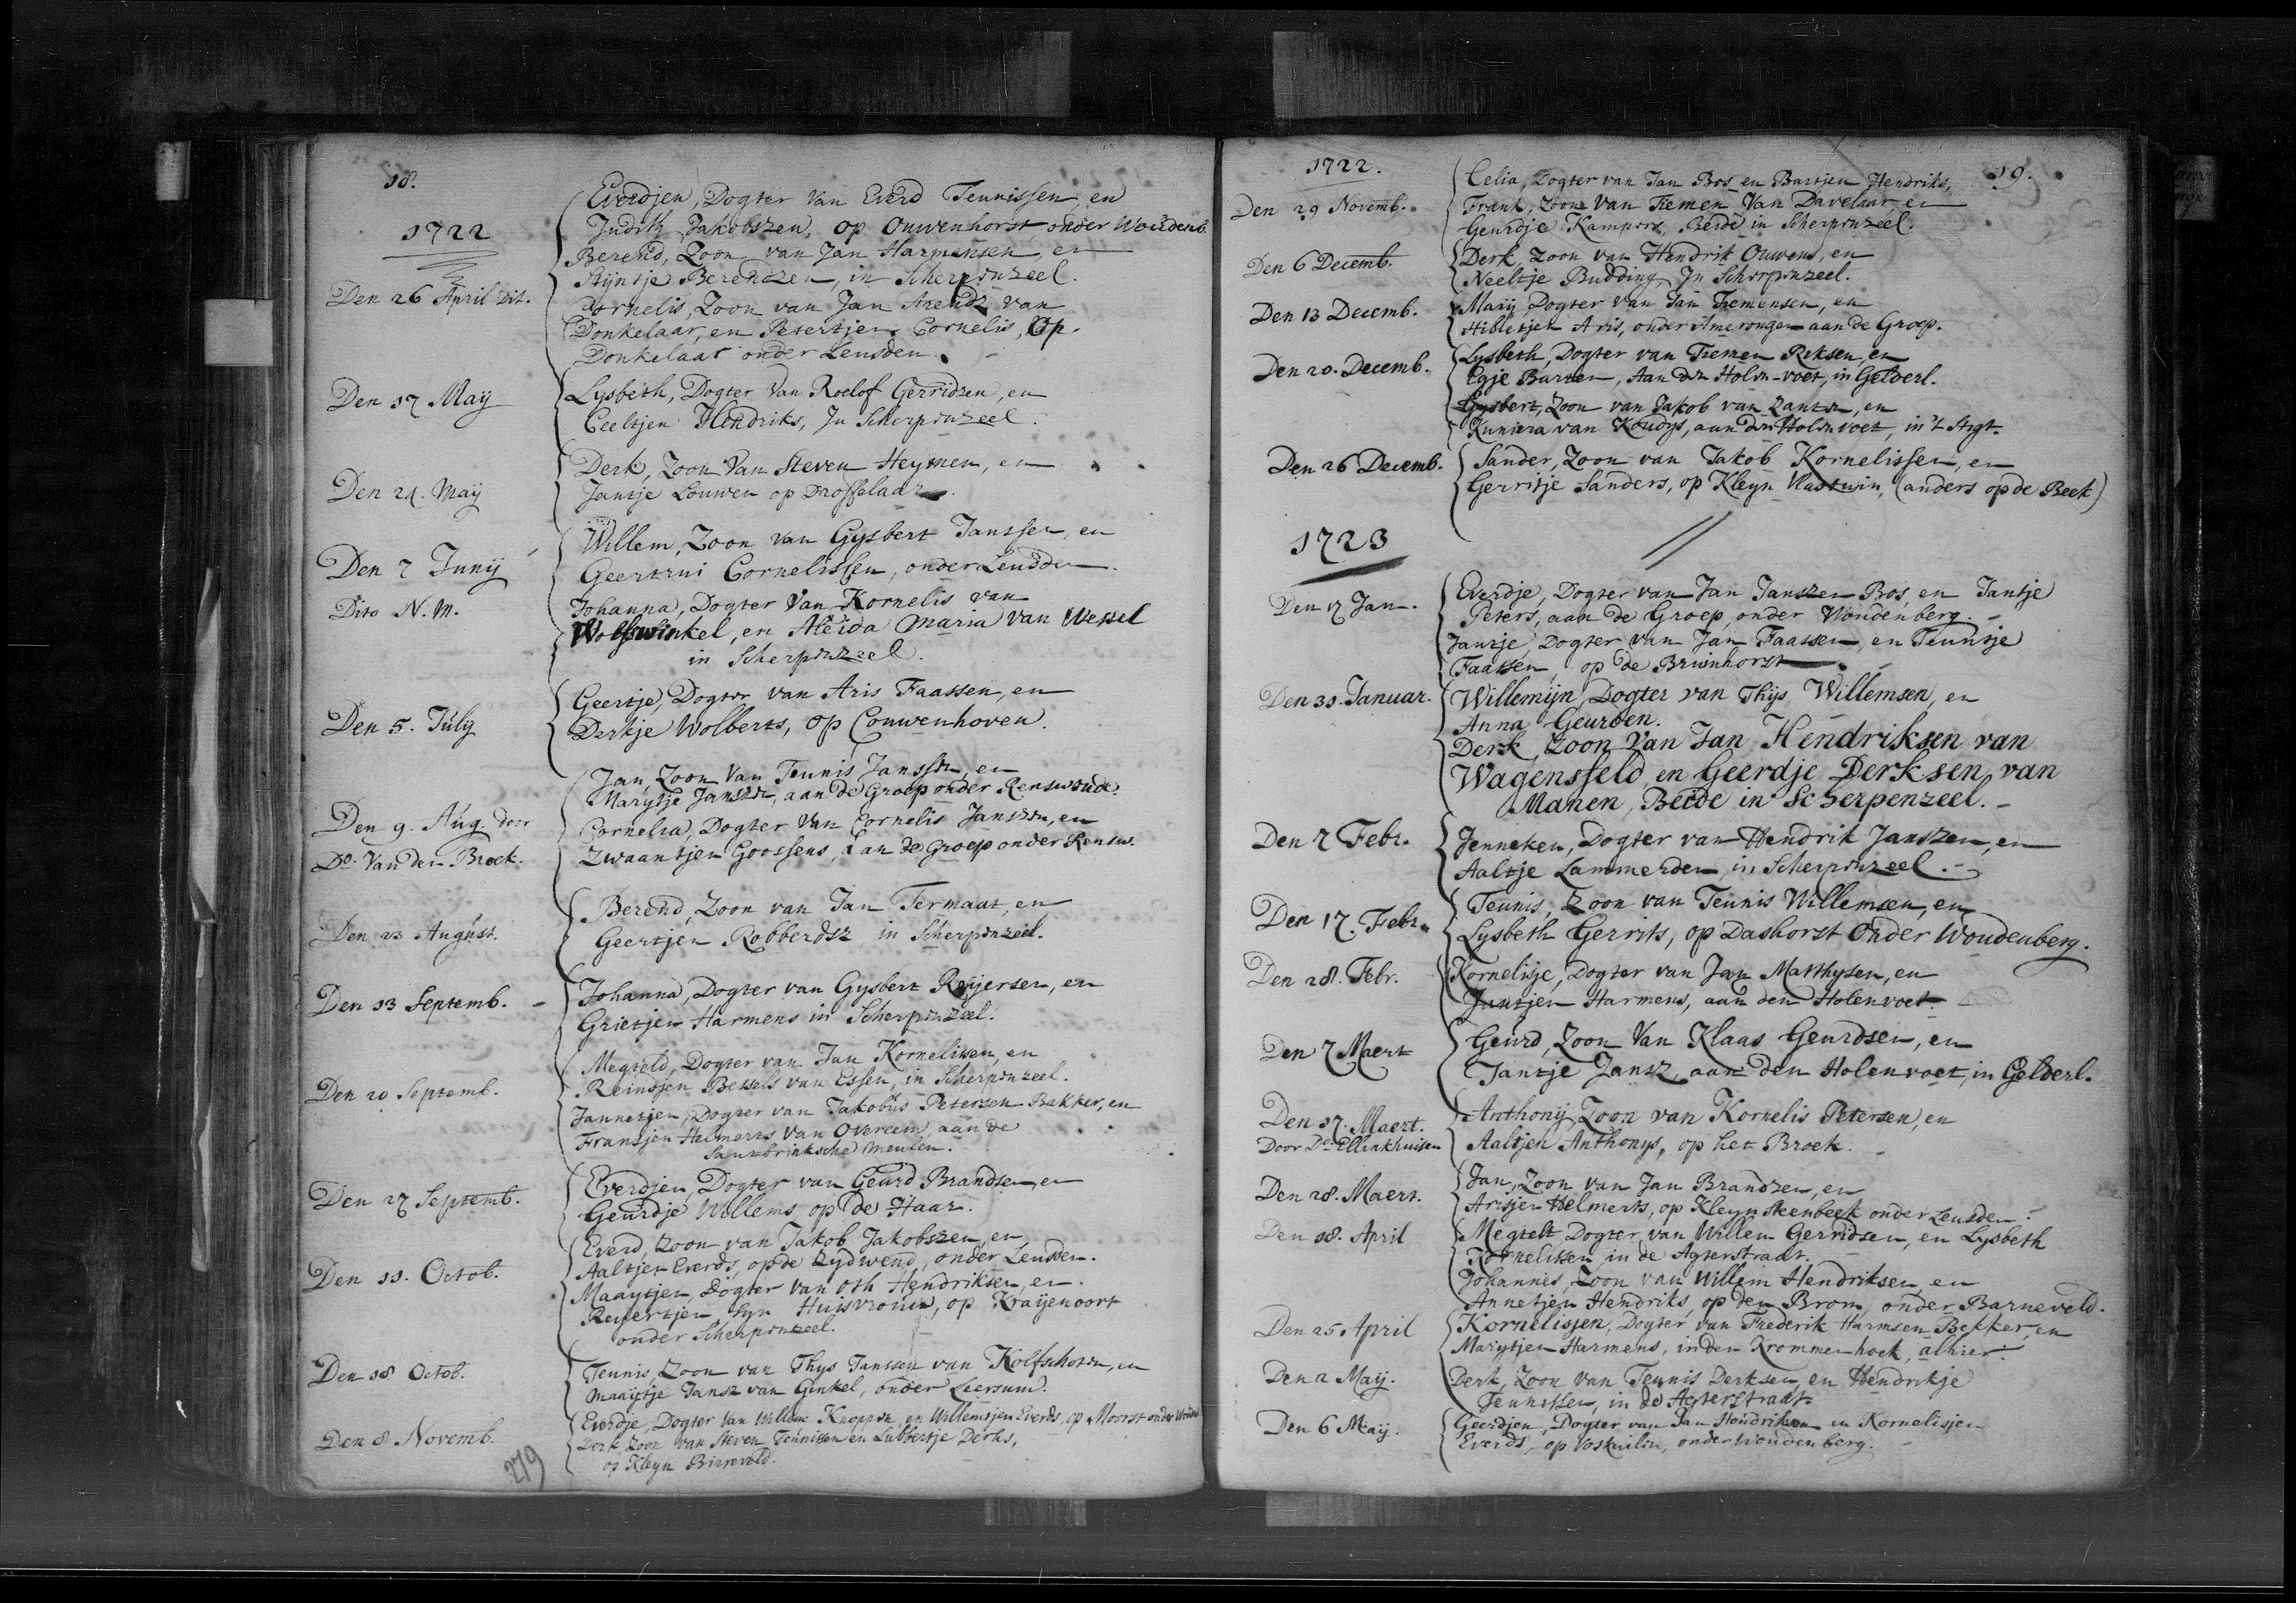 18.
1722
Everdjen, Dogter Van Everd Teunissen, en
Judith Jakobszen, op Ouwenhorst onder Woudenb.
Den 26 April Dit.
Berend, Zoon van Jan Harmensen, en
Rijntje Berendzen, in Scherpenzeel.
Cornelis, Zoon van Jan Arendz van
Donkelaar, en Petertjen Cornelis, Op
Donkelaar onder Leusden.
Den 17 Maij
Lysbeth, Dogter Van Roelof Gerridzen, en
Ceeltjen Hendriks, In Scherpenzeel.
Den 24. Maij
Derk, Zoon Van Steven Heymen, en
Jantje Louwen op Drosselaar.
Den 7 Junij
Willem, Zoon van Gysbert Janssen, en
Geertrui Cornelissen, onder Leusden.
Dito N. M.
Johanna, Dogter Van Kornelis van
Wolfswinkel, en Aleida Maria van Wessel
in Scherpenzeel.
Den 5. July
Geertje, Dogter van Aris Faassen, en
Derkje Wolberts, op Couwenhoven.
Den 9. Aug. door
Do. Van den Broek.
Jan, Zoon Van Teunis Janssen, en
Marytje Janszen, aan de Groep onder Renswoude.
Cornelia, Dogter Van Cornelis Janszen, en
Zwaantjen Goossens, aan de Groep onder Rensw.
Den 23 August.
Berend, Zoon van Jan Termaat, en
Geertjen Robberdsz in Scherpenzeel.
Den 13 Septemb.
Johanna, Dogter van Gysbert Reyersen, en
Grietjen Harmens in Scherpenzeel.
Den 20 Septemb.
Megteld, Dogter van Jan Kornelissen, en
Reindjen Bessels van Essen, in Scherpenzeel.
Jannetjen, Dogter van Jakobus Petersen Bakker, en
Fransjen Helmerts van Overeem, aan de
Santbrinksche Meulen.
Den 27 Septemb.
Everdjen, Dogter van Geurd Brandsen, en
Geurdje Willems op de Haar.
Den 11. Octob.
Everd, Zoon van Jakob Jakobszen, en
Aaltjen Everds, op de Zydwend, onder Leusden.
Maaytjen, Dogter van Oth Hendriksen, en
Reyertjen syn Huisvrouw, op Kraijenoort
onder Scherpenzeel.
Den 18 Octob.
Teunis, Zoon van Thys Janssen van Kolfschoten, en
Maaijtje Jansz van Ginkel, onder Leersum.
Den 8 Novemb.
Everdje, Dogter Van Willem Knoppen, en Willemtjen Everds, op Moorst onder Woud.
Derk Zoon van Steven Teunissen en Lubbertje Derks,
op Kleyn Birreveld.
279
1722.
19.
Den 29 Novemb.
Celia, Dogter van Jan Bos en Bartjen Hendriks,
Frank, Zoon van Tiemen Van Davelaar en
Geurdje Kampers, Beide in Scherpenzeel.
Den 6 Decemb.
Derk, Zoon van Hendrik Ouwens, en
Neeltje Budding, In Scherpenzeel.
Den 13 Decemb.
Marij Dogter van Jan Tiemensen, en
Hibletjen Aris, onder Amerongen aan de Groep.
Den 20. Decemb.
Lysbeth, Dogter van Tiemen Reksen, en
Egje Barten, Aan den Holen-voet, in Gelderl.
Gysbert, Zoon van Jakob van Zanten, en
Kuniera van Koudys, aan den Holenvoet, in 't Stigt.
Den 26 Decemb.
Sander, Zoon van Jakob Kornelissen, en
Gerritje Sanders, op Kleyn Vlastuin, (anders op de Beek)
1723
Den 17 Jan.
Everdje, Dogter van Jan Janszen Bos, en Jantje
Peters, aan de Groep, onder Woudenberg.
Jantje, Dogter van Jan Faassen, en Teuntje
Faassen, op de Bruinhorst.
Den 31. Januar.
Willemijn, Dogter van Thijs Willemsen, en
Anna Geurden.
Derk, Zoon Van Jan Hendriksen van
Wagensfeld en Geerdje Derksen van
Manen, Beide in Scherpenzeel.
Den 7 Febr.
Jenneken, Dogter van Hendrik Janszen, en
Aaltje Lammerden, in Scherpenzeel.
Den 17. Febr.
Teunis, Zoon van Teunis Willemsen, en
Lysbeth Gerrits, op Dashorst Onder Woudenberg.
Den 28. Febr.
Kornelisje, Dogter van Jan Matthysen, en
Jantjen Harmens, aan den Holenvoet
Den 7 Maert
Geurd, Zoon Van Klaas Geurdsen, en
Jantje Jansz, aan den Holenvoet, in Gelderl.
Den 17. Maert.
Door Do Ellinkhuisen
Anthonij, Zoon van Kornelis Petersen, en
Aaltjen Anthonys, op het Broek.
Den 28. Maert.
Jan, Zoon van Jan Brandzen, en
Arisjen Helmerts, op Kleyn Steenbeek onder Leusden.
Den 18. April
Megtelt Dogter van Willem Gerridsen, en Lysbeth
Kornelissen in de Agterstraat.
Johannes, Zoon van Willem Hendriksen, en
Annetjen Hendriks, op den Brom, onder Barneveld.
Den 25 April
Kornelisjen, Dogter van Frederik Harmsen Bekker, en
Marytjen Harmens, in den Krommenhoek, alhier.
Den 2 Maij.
Derk, Zoon van Teunis Derksen, en Hendrikje
Teunissen, in de Agterstraat.
Den 6 Maij.
Geerdjen, Dogter van Jan Hendriksen en Kornelisjen
Everds, op Voskuilen, onder Woudenberg.